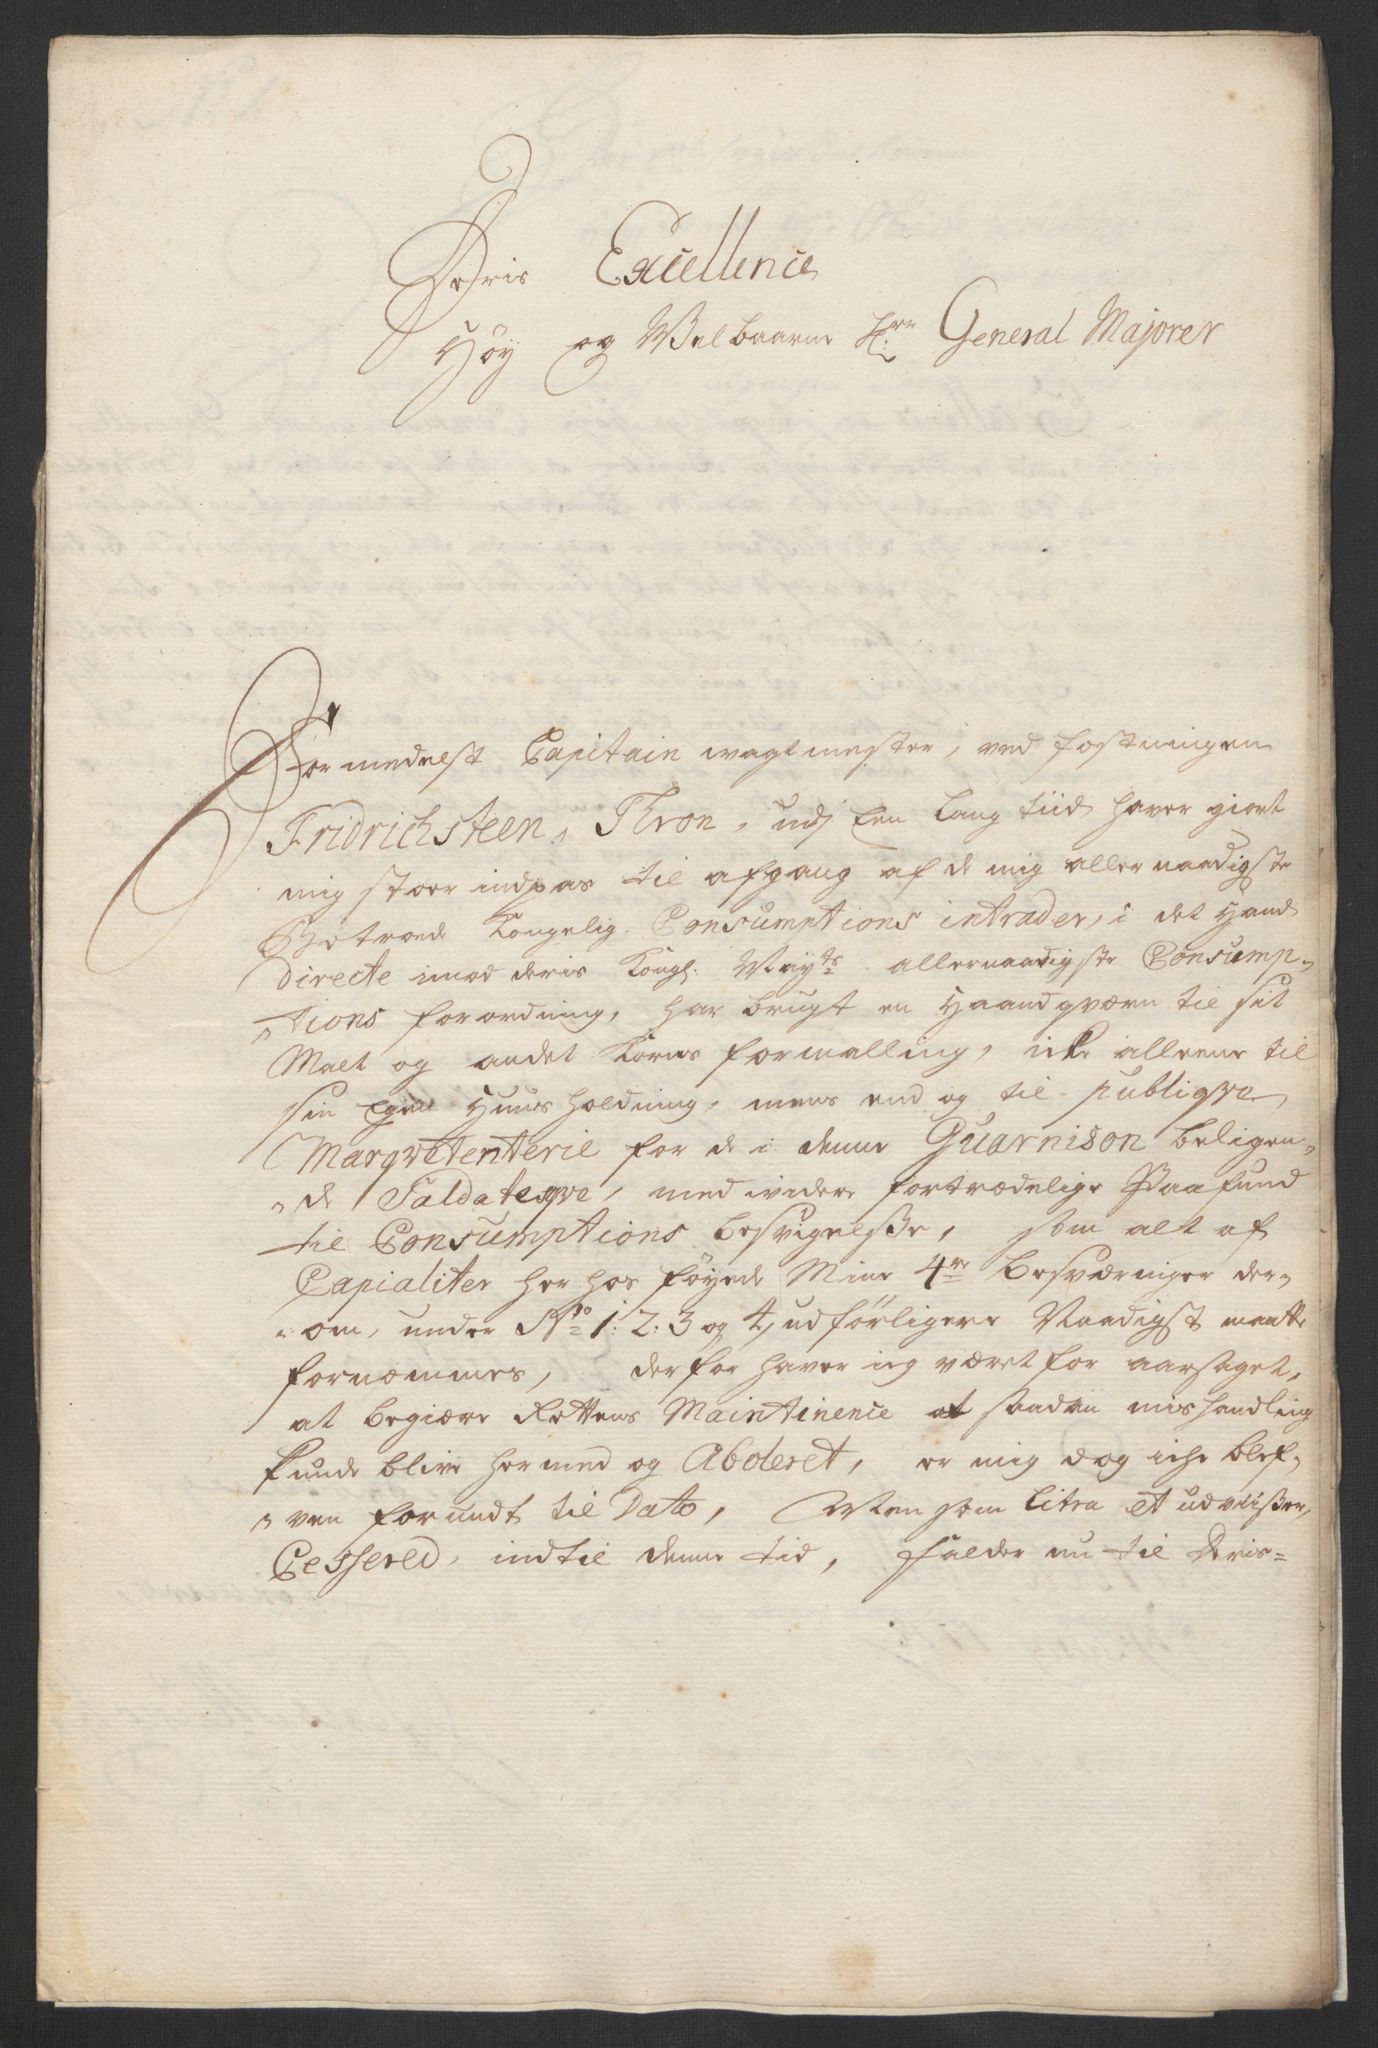 Deris Excellence
Höy og Welbaarne Hr: General Majorer
Formedelst Capitain wagtmester, ved fæstningen
Fridrichsteen, Thron, udj Een lang tiid haver giort
mig stoer indpas til afgang af de mig allernaadigste
Betroede Kongelig. Consumptions intrader, i det Hand
directe imod deris Kongl: May:ts allernaadigste Consump-
tions forordning, har brugt en Haandqværn til sit
Malt og andet Korns formalling, icke alleene til
sin Egen Huusholdning, mens end og til publiqve
Marqvetenterie for de i denne Guarnison beligen-
de Saldatesqve, med widere fortrædelige Paafund
til Consumptions besvigelsße, som alt af
Capialiter her hos föyede Mine 4re besværninger der-
om, under No 1: 2: 3 og 4, udförligere Naadigst maatte
fornemmes, derfor haver ieg været foraarsaget,
at begiære Rettens Maintinence at saadan mishandling
kunde blive hermed og Aboleret, er mig dog iche blef-
ven forundt til Dato, Men som litra et udviißer,
Cesseret, indtil denne tid, falder nu til Deris=